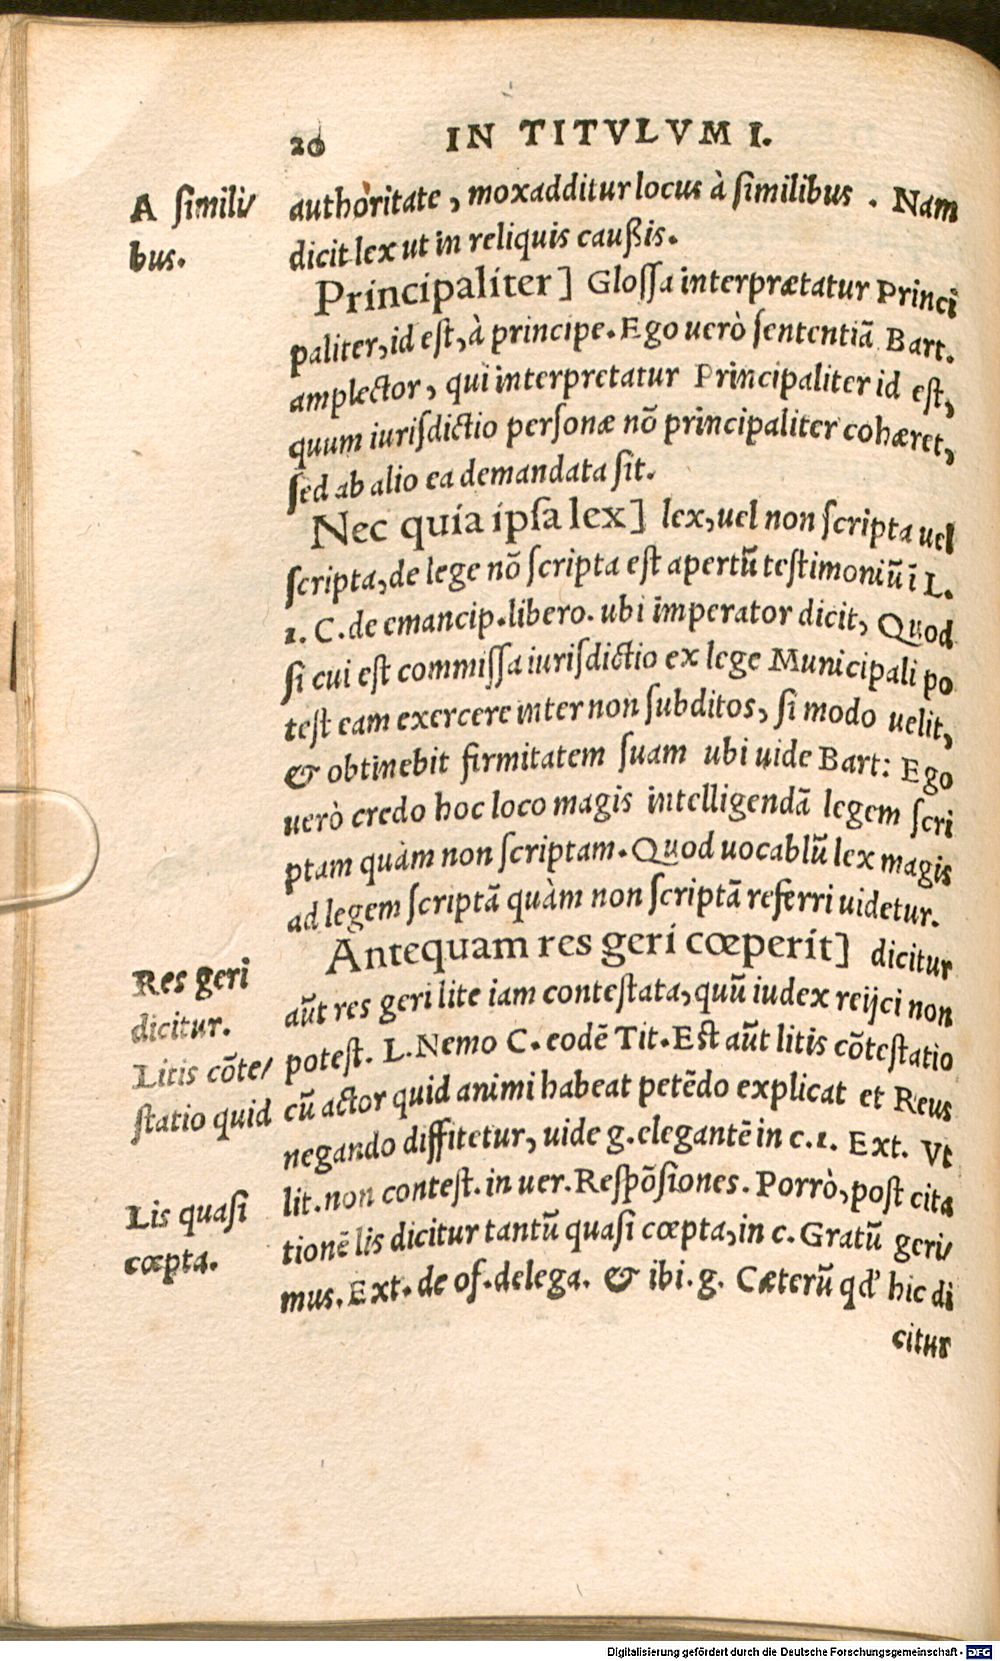 20 IN TITVLVM I.
A simili/
bus.
authoritate, mox additur locus à similibus. Nam
dicit lex ut in reliquis caußis.
Principaliter] Glossa interprætatur Princi
paliter, id est, à principe. Ego uerò sententiã Bart.
amplector, qui interpretatur Principaliter id est,
quum iurisdictio personæ nõ principaliter cohæret,
sed ab alio ea demandata sit.
Nec quia ipsa lex] lex, uel non scripta uel
scripta, de lege nõ scripta est apertũ testimoniũ ĩ L.
1. C. de emancip. libero. ubi imperator dicit, Quod
si cui est commissa iurisdictio ex lege Municipali po
test eam exercere inter non subditos, si modo uelit,
& obtinebit firmitatem suam ubi uide Bart: Ego
uerò credo hoc loco magis intelligendã legem scri
ptam quàm non scriptam. Quod uocablũ lex magis
ad legem scriptã quàm non scriptã referri uidetur.
Antequam res geri cœperit] dicitur
Res geri
dicitur.
aũt res geri lite iam contestata, quũ iudex reijci non
Litis cõte/
statio quid
potest. L. Nemo C. eodẽ Tit. Est aũt litis cõtestatio
cũ actor quid animi habeat petẽdo explicat et Reus
negando diffitetur, uide g. elegantẽ in c. 1. Ext. Vt
Lis quasi
cœpta.
lit. non contest. in uer. Respõsiones. Porrò, post cita
tionẽ lis dicitur tantũ quasi cœpta, in c. Gratũ geri/
mus. Ext. de of. delega. & ibi. g. Cæterũ qd' hic di
citur
Digitalisierung gefördert durch die Deutsche Forschungsgemeinschaft - DFG